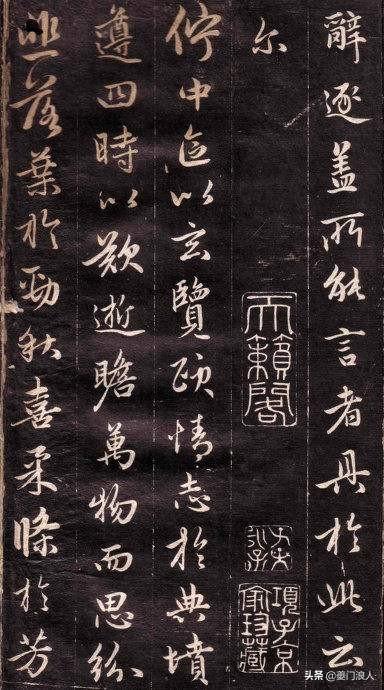 辭逐蓋所能言者具於此云
尔
天籟閣
項子京
家珍藏
佇中區以玄覽頤情志於典墳
遵四時以歎逝瞻萬物而思紛
悲落葉於勁秋喜柔條於芳
头条 @夔门浪人